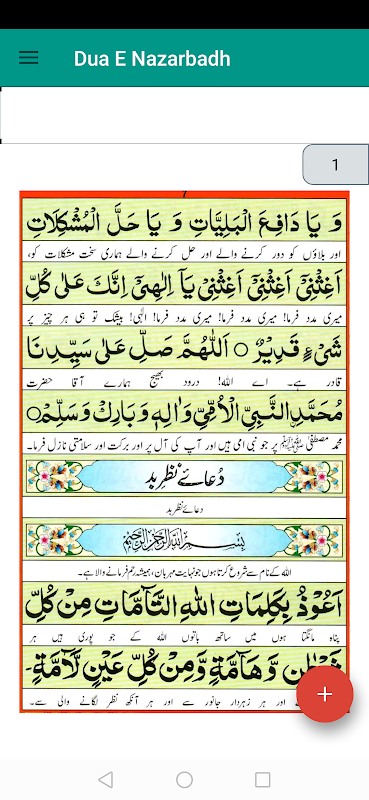 Dua E Nazarbadh
1
7
وَ یَا دَافِعَ الْبَلِیَّاتِ وَ یَا حَلَّ الْمُشْکِلَاتِ
اور بلاؤں کو دور کرنے والے اور حل کرنے والے ہماری سخت مشکلات کو،
اَغِثْنِیْ اَغِثْنِیْ اَغِثْنِیْ یَآ اِلٰهِیْ اِنَّكَ عَلٰی کُلِّ
میری مدد فرما! میری مدد فرما! میری مدد فرما! الٰہی! بیشک تو ہی ہر چیز پر
شَیْءٍ قَدِیْرٌ ○ اَللّٰهُمَّ صَلِّ عَلٰی سَیِّدِنَا
قادر ہے۔ اے اللہ! درود بھیج ہمارے آقا حضرت
مُحَمَّدِ النَّبِیِّ الْاُمِّیِّ وَاٰلِهٖ وَبَارِكْ وَسَلِّمْ ○
محمد مصطفیٰ ﷺ پر جو نبی امی ہیں اور آپ کی آل پر اور برکت اور سلامتی نازل فرما۔
دُعائے نظرِ بد
دعائے نظر بد
بِسْمِ اللهِ الرَّحْمٰنِ الرَّحِیْمِ
اللہ کے نام سے شروع کرتا ہوں جو نہایت مہربان، ہمیشہ رحم فرمانے والا ہے۔
اَعُوْذُ بِکَلِمَاتِ اللهِ التَّآمَّاتِ مِنْ کُلِّ
پناہ مانگتا ہوں میں ساتھ باتوں اللہ کے جو پوری ہیں ہر
شَیْطٰنٍ وَّهَآمَّةٍ وَّمِنْ کُلِّ عَیْنٍ لَّآمَّةٍ۔
اور ہر زہردار جانور سے اور ہر آنکھ نظر لگانے والی سے۔